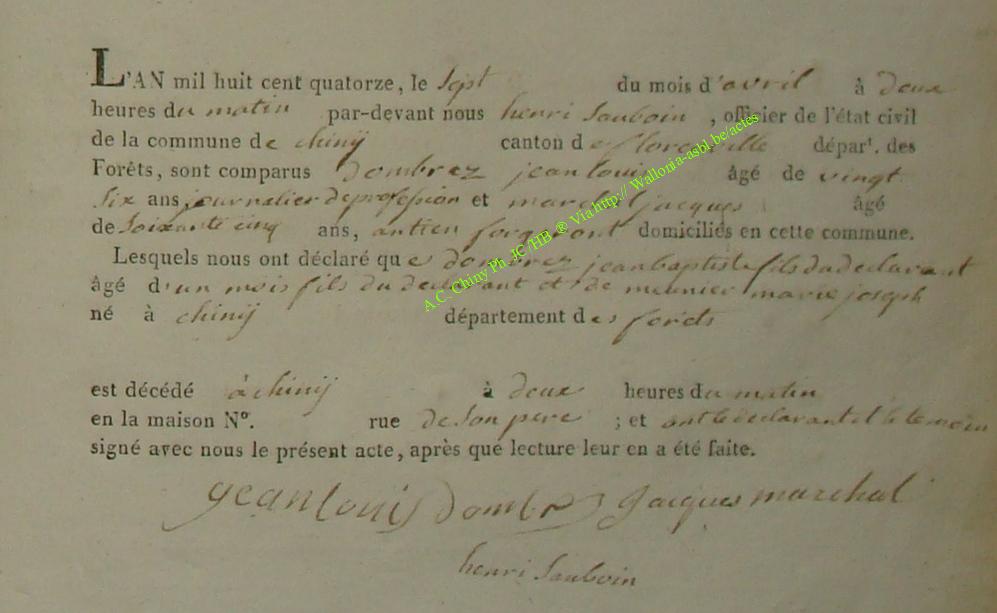 L'AN mil huit cent quatorze, le sept du mois d'avril à deux
heures du matin par-devant nous henri Sauboin , officier de l'état civil
de la commune de chinij canton de florenville dépar<sup>t</sup>. des
Forêts, sont comparus Dombrez jean louis âgé de vingt
six ans journalier de profession et marchal jacques âgé
de soixante cinq ans, antien forgeront domiciliés en cette commune.
Lesquels nous ont déclaré que dombrez jean baptiste fils du declarant
âgé d'un mois fils du declarant et de meunier marie joseph
né à chinij département des forets
est décédé à chinij à deux heures du matin
en la maison N°. rue de son pere ; et ont le declarant et le temoin
signé avec nous le présent acte, après que lecture leur en a été faite.
jean louis Dombrez jacques marchal
henri Sauboin
A.C. Chiny Ph. JC/HB ® Via http:// Wallonia-asbl.be/actes